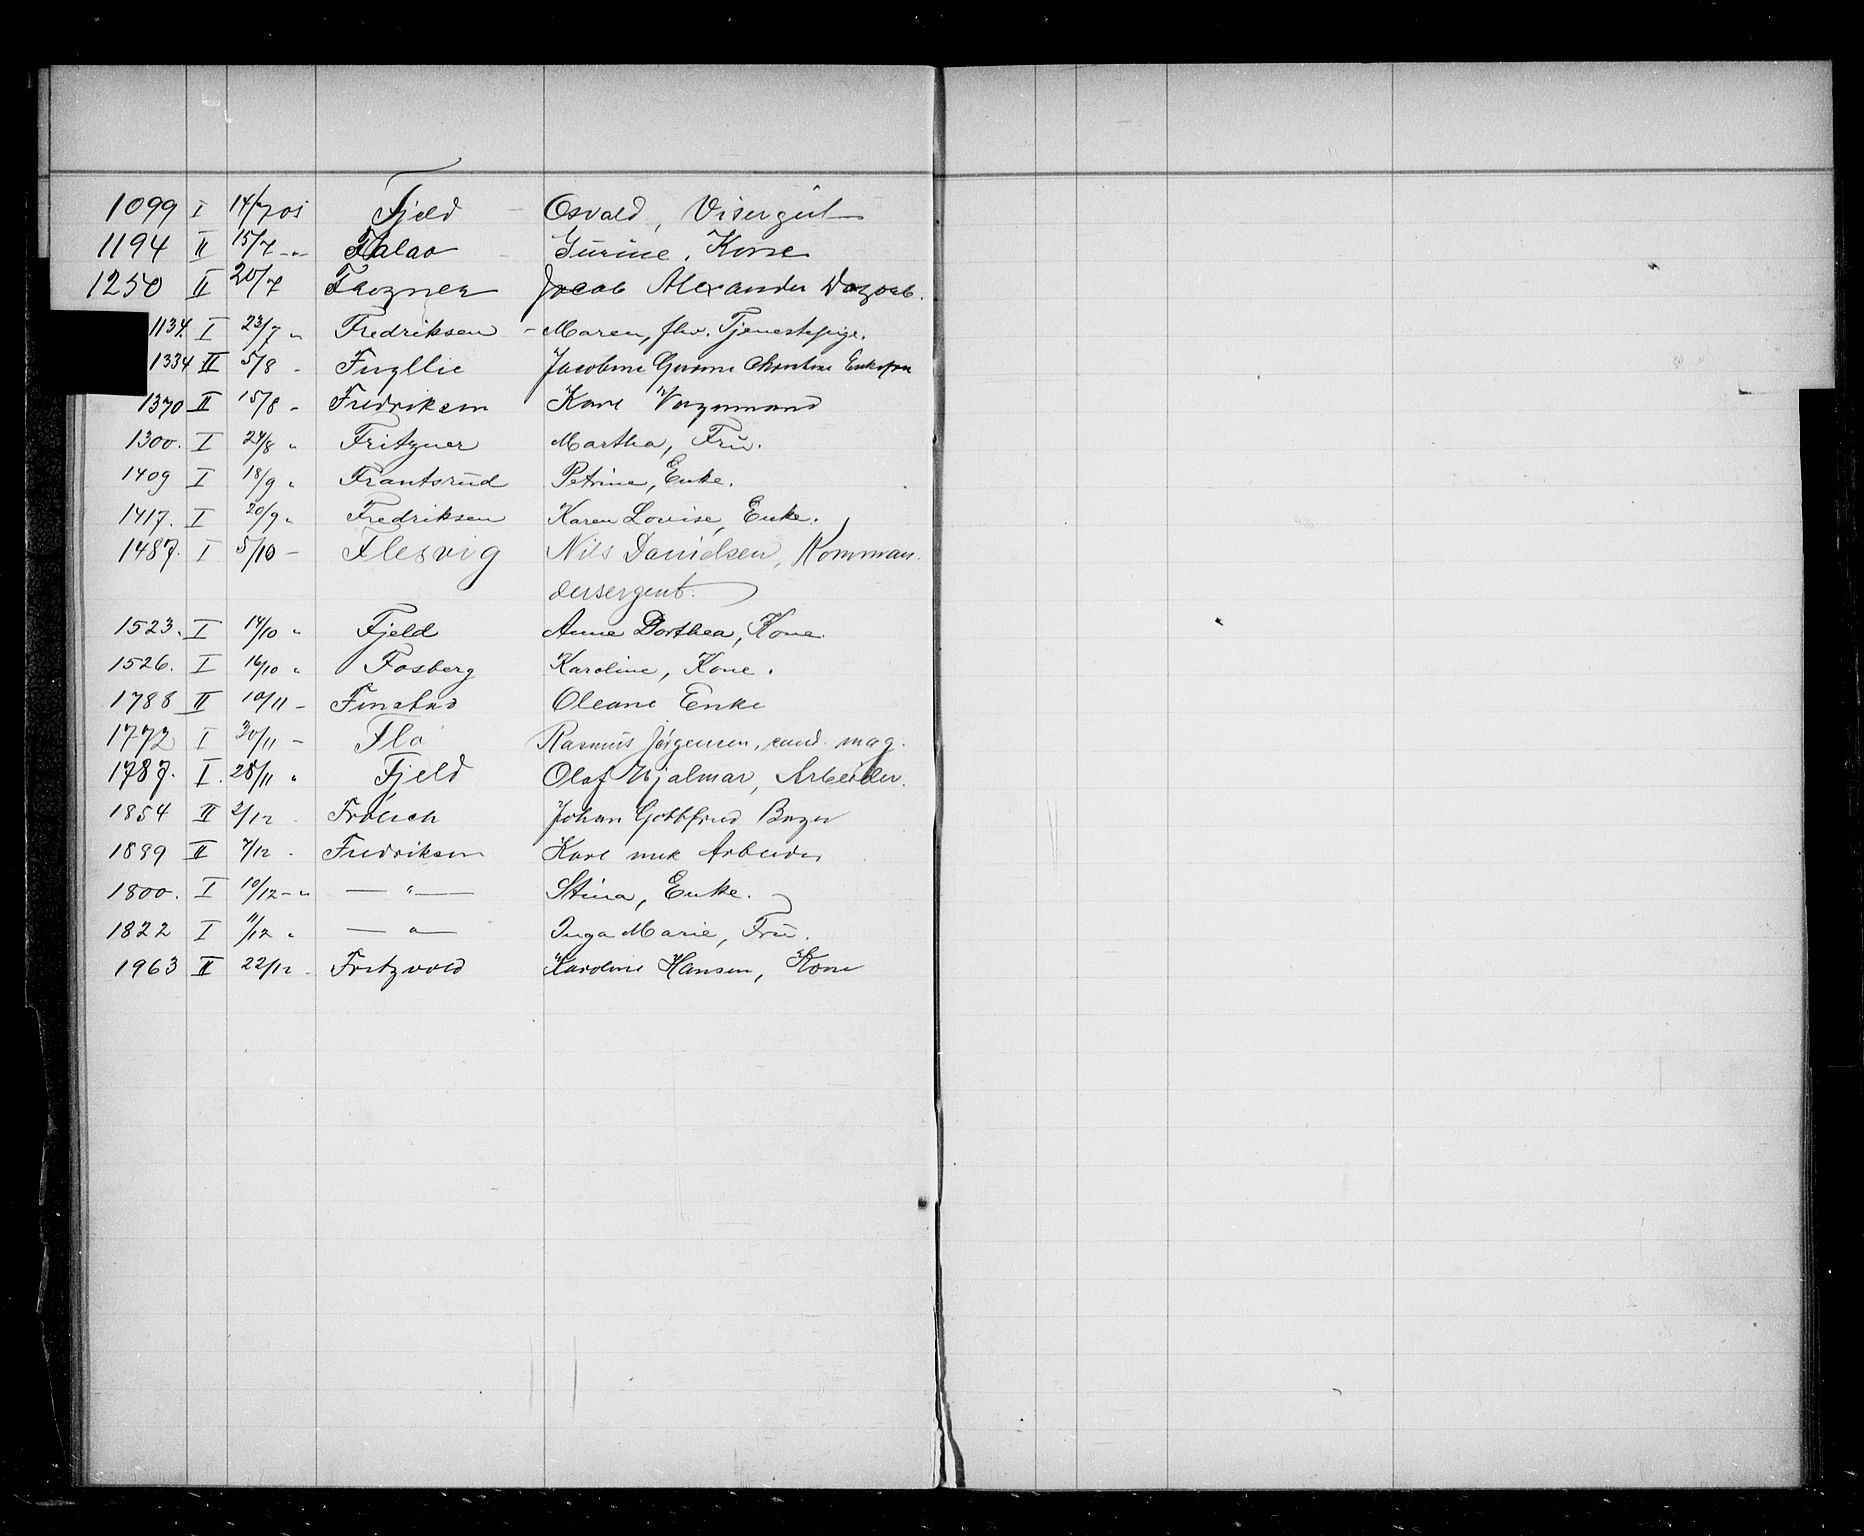 1099 I 14/7 05 Fjeld Osvald, Visergut
1194 II 15/7 - " Falao Gurine, Kone
1250 II 20/7 Frogner Jacob Alexander
1134 I 23/7 " Fredriksen - Maren, fhv. Tjenestepige.
1334 II 5/8 - Fugllie Jacobine Christine
1370 II 15/8 - Fredriksen Karl Vognmand
1300. I 24/8 " Fritzner Martha, Fru.
1409 I 18/9 " Frantsrud Petrine, Enke.
1417. I 20/9 " Fredriksen Karen Lovise, Enke.
1487. I 5/10 - Flesvig Nils Danielsen, Komman
dersergent.
1523. I 14/10 " Fjeld Anne Dorthea, Kone.
1526. I 16/10 " Fosberg Karoline, Kone.
1788 II 10/11 - Finstad Oleane Enke
1772 I 30/11 - Flo Rasmus Jørgensen, cand. mag.
1787. I. 28/11 " Fjeld Olaf Hjalmar, Arbeider.
1854 II 2/12 - Frölich Johan Gottfried Bager
1899 II 7/12 - Fredriksen Karl Arbeider
1800. I 10/12 - " — " — Stina, Enke.
1822 I 11/12 " — " — Inga Marie, Fru.
1963 II 22/12 - Fritzvold Karoline Hansen, Kone